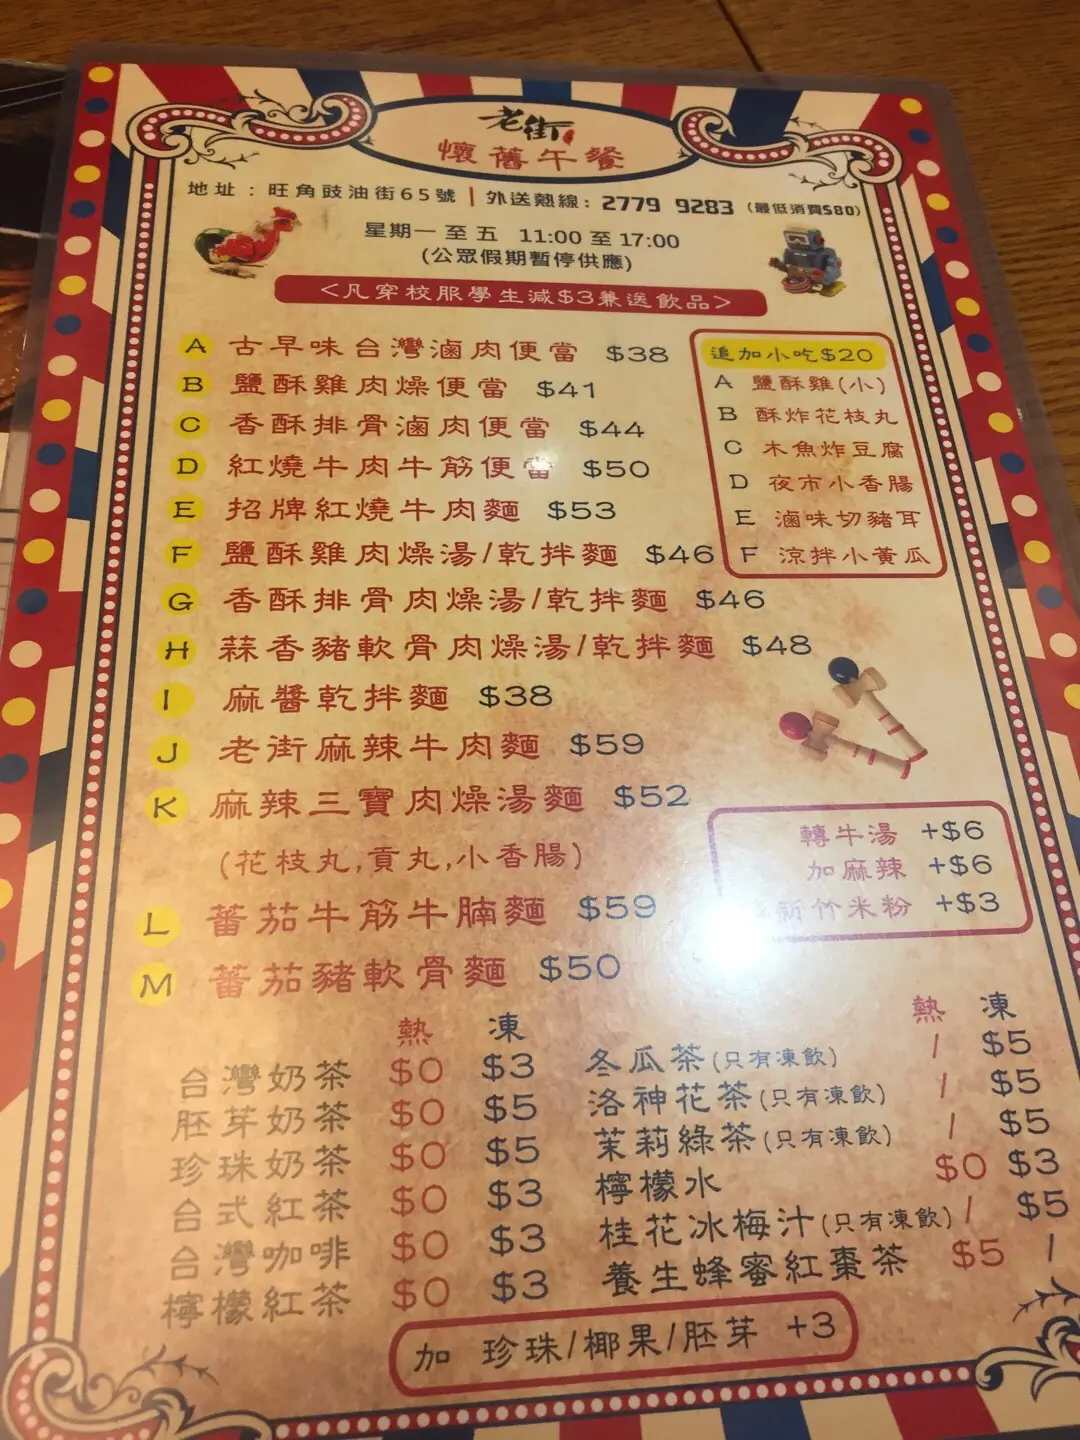 老街
懷舊午餐
地址：旺角豉油街65號 | 外送熱線：2779 9283 (最低消費$80)
星期一至五 11:00至17:00
(公眾假期暫停供應)
<凡穿校服學生減$3兼送飲品>
A 古早味台灣滷肉便當 $38
B 鹽酥雞肉燥便當 $41
C 香酥排骨滷肉便當 $44
D 紅燒牛肉牛筋便當 $50
E 招牌紅燒牛肉麵 $53
F 鹽酥雞肉燥湯/乾拌麵 $46
G 香酥排骨肉燥湯/乾拌麵 $46
H 蒜香豬軟骨肉燥湯/乾拌麵 $48
I 麻醬乾拌麵 $38
J 老街麻辣牛肉麵 $59
K 麻辣三寶肉燥湯麵 $52
(花枝丸,貢丸,小香腸)
L 蕃茄牛筋牛腩麵 $59
M 蕃茄豬軟骨麵 $50
追加小吃$20
A 鹽酥雞(小)
B 酥炸花枝丸
C 木魚炸豆腐
D 夜市小香腸
E 滷味切豬耳
F 涼拌小黃瓜
轉牛湯 +$6
加麻辣 +$6
新竹米粉 +$3
熱 凍
台灣奶茶 $0 $3
胚芽奶茶 $0 $5
珍珠奶茶 $0 $5
台式紅茶 $0 $3
台灣咖啡 $0 $3
檸檬紅茶 $0 $3
熱 凍
冬瓜茶(只有凍飲) / $5
洛神花茶(只有凍飲) / $5
茉莉綠茶(只有凍飲) / $5
檸檬水 $0 $3
桂花冰梅汁(只有凍飲) / $5
養生蜂蜜紅棗茶 $5 /
加 珍珠/椰果/胚芽 +3